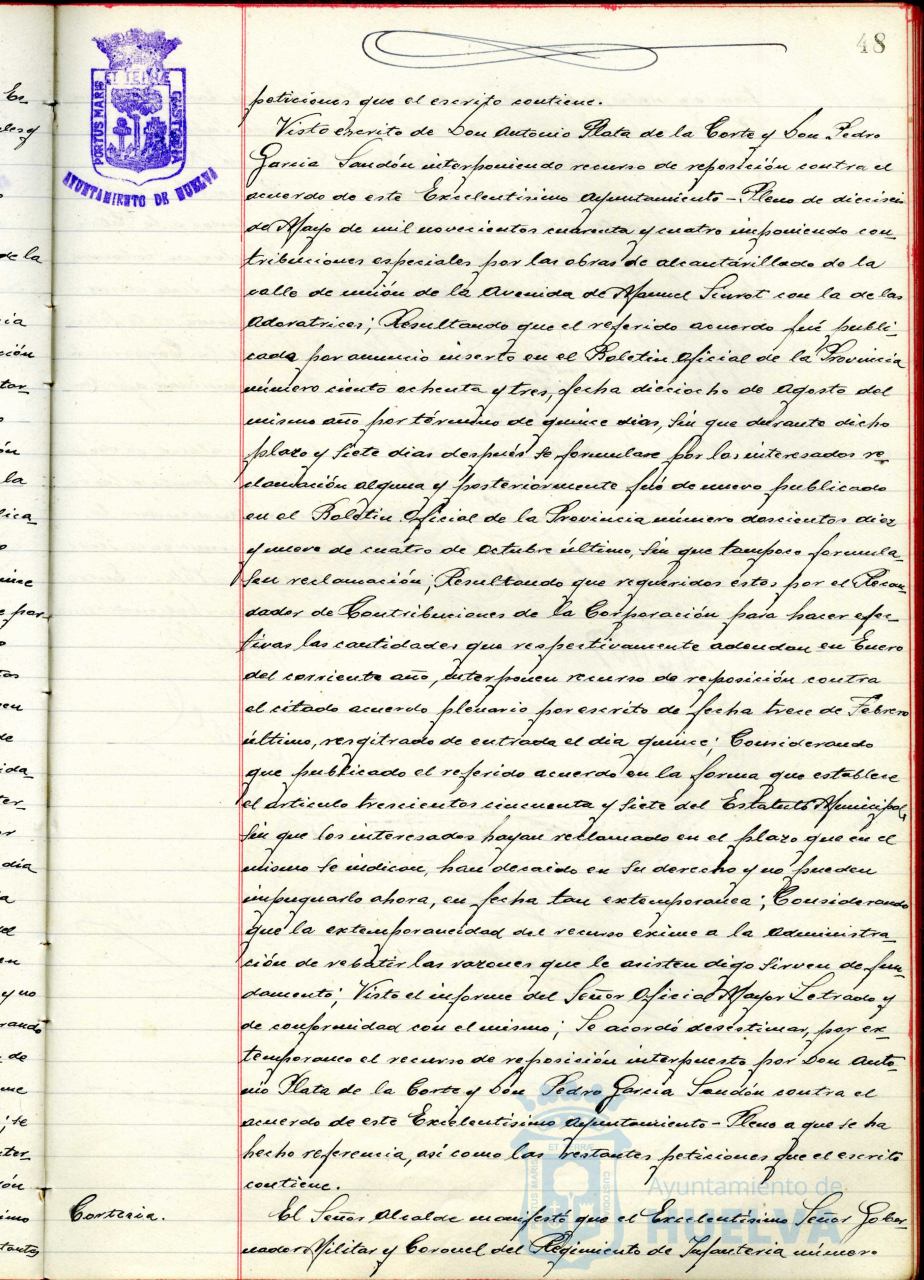 48
PORTUS MARIS ET TERRÆ CUSTODIA
AYUNTAMIENTO DE HUELVA
peticiones que el escrito contiene.
Visto escrito de Don Antonio Plata de la Corte y Don Pedro
García Sandón interponiendo recurso de reposición contra el
acuerdo de este Excelentísimo Ayuntamiento-Pleno de dieciseis
de Mayo de mil novecientos cuarenta y cuatro imponiendo con-
tribuciones especiales por las obras de alcantarillado de la
calle de unión de la Avenida de Manuel Siurot con la de las
Adoratrices; Resultando que el referido acuerdo fué publi-
cada por anuncio inserto en el Boletín Oficial de la Provincia
número ciento ochenta y tres, fecha dieciocho de Agosto del
mismo año por término de quince dias, sin que durante dicho
plazo y siete dias después se formulase por los interesados re-
clamación alguna y posteriormente fué de nuevo publicado
en el Boletín Oficial de la Provincia número doscientos diez
y nueve de cuatro de Octubre último, sin que tampoco formula-
sen reclamación; Resultando que requeridos estos por el Recau-
dador de Contribuciones de la Corporación para hacer efec-
tivas las cantidades que respectivamente adeudan en Enero
del corriente año, interponen recurso de reposición contra
el citado acuerdo plenario por escrito de fecha trece de Febrero
último, resgitrado de entrada el dia quince; Considerando
que publicado el referido acuerdo en la forma que establece
el artículo trescientos cincuenta y siete del Estatuto Municipal,
sin que los interesados hayan reclamado en el plazo que en el
mismo se indican, han decaido en su derecho y no pueden
impugnarlo ahora, en fecha tan extemporanea; Considerando
que la extemporaneidad del recurso exime a la Administra-
ción de rebatir las razones que le asisten digo sirven de fun-
damento; Visto el informe del Señor Oficial Mayor Letrado y
de conformidad con el mismo; Se acordó desestimar, por ex-
temporaneo el recurso de reposición interpuesto por Don Anto-
nio Plata de la Corte y Don Pedro García Sandón contra el
acuerdo de este Excelentísimo Ayuntamiento-Pleno a que se ha
hecho referencia, así como las restantes peticiones que el escrito
contiene.
Cortesia.
El Señor Alcalde manifestó que el Excelentísimo Señor Gober-
nador Militar y Coronel del Regimiento de Infantería número
Ayuntamiento de
HUELVA